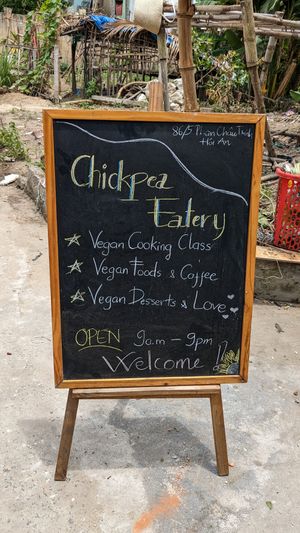 86/5 Phan Châu Trinh
Hội An
Chickpea
Eatery
Vegan Cooking Class
Vegan Foods & Coffee
Vegan Desserts & Love
OPEN 9am - 9pm
Welcome !